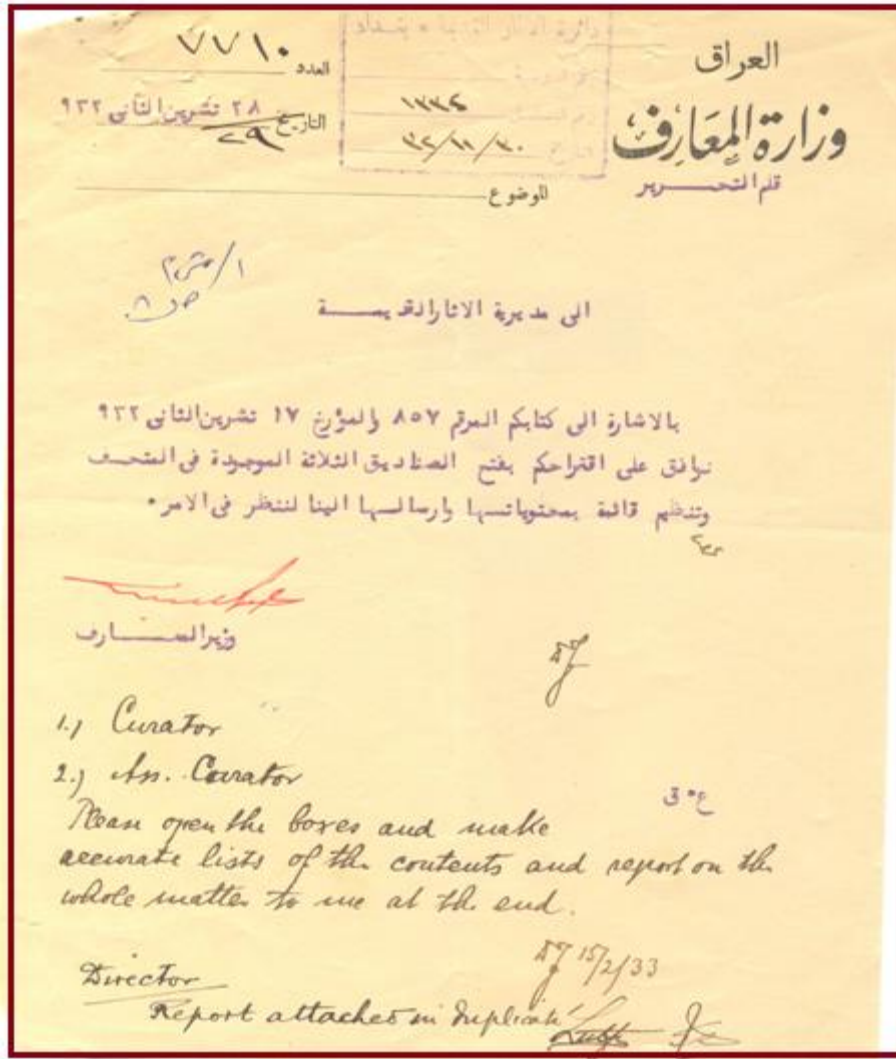 العراق
وزارة المعارف
قلم التحـــرير
العدد ٧٧١٠
التاريخ ٢٨ تشرين الثاني ٩٣٢
٢٩
دائرة الاثار القديمة * بغداد
١٣٣٤
٣٢/١١/٣٠
الموضوع
الى مديرية الاثار القديمــــة
بالاشارة الى كتابكم المرقم ٨٥٧ والمؤرخ ١٧ تشرين الثاني ٩٣٢
نوافق على اقتراحكم بفتح الصناديق الثلاثة الموجودة في المتحف
وتنظيم قائمة بمحتوياتـها وارسالـها الينا لننظر في الامر٠
وزير المعـــارف
1.) Curator
2.) Ass. Curator
ع٠ق
Please open the boxes and make
accurate lists of the contents and report on the
whole matter to me at the end.
15/2/33
Director
Report attached in duplicate